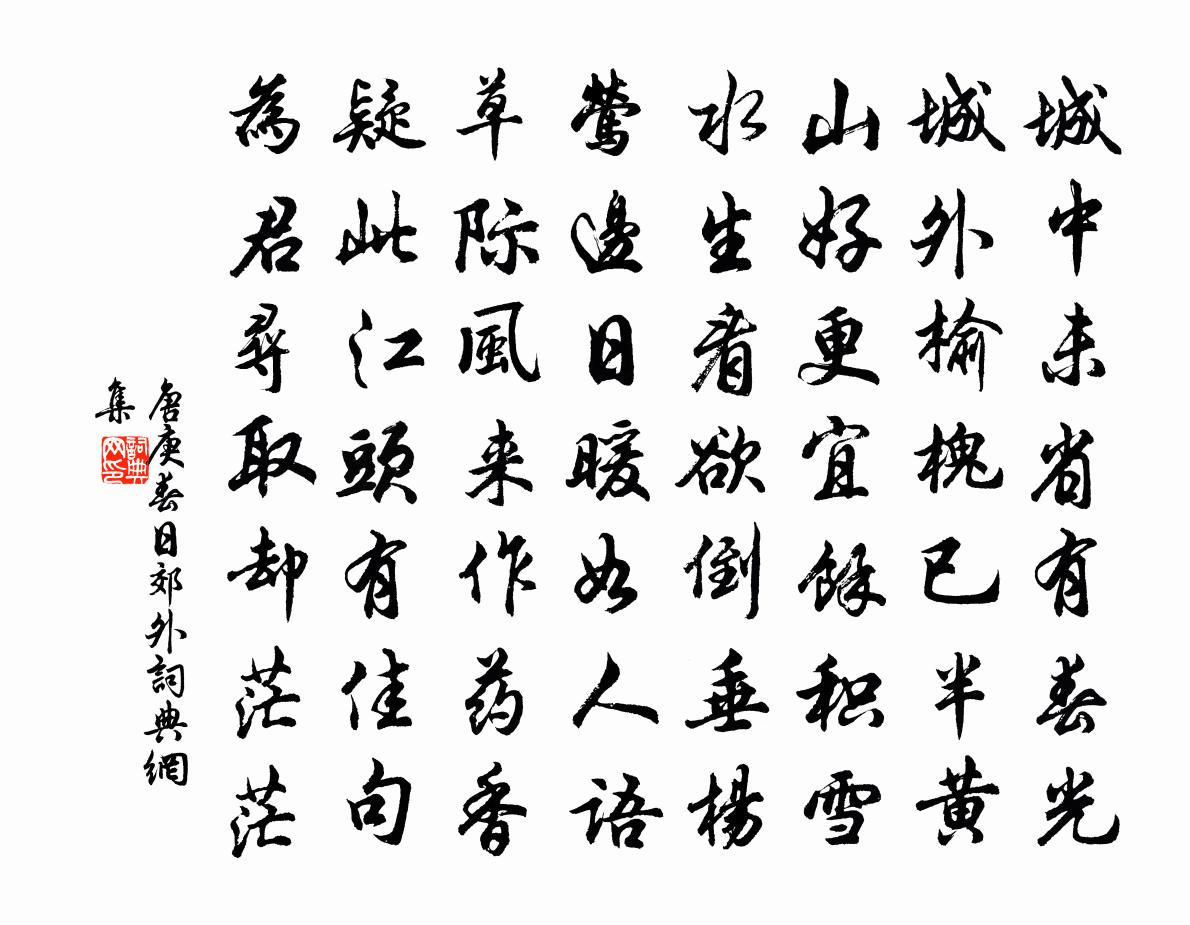 城中未省有春光
城外榆槐已半黄
山好更宜餘积雪
水生看欲倒垂楊
鶯邊日暖如人語
草际風来作药香
疑此江頭有佳句
為君尋取却茫茫
唐庚春日郊外詞典網
集
詞典網印